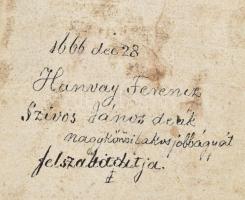 1666 dec 28
Hanvay Ferencz
Szivos János deák
nagykőrösi lakos jobbágyát
felszabadítja.